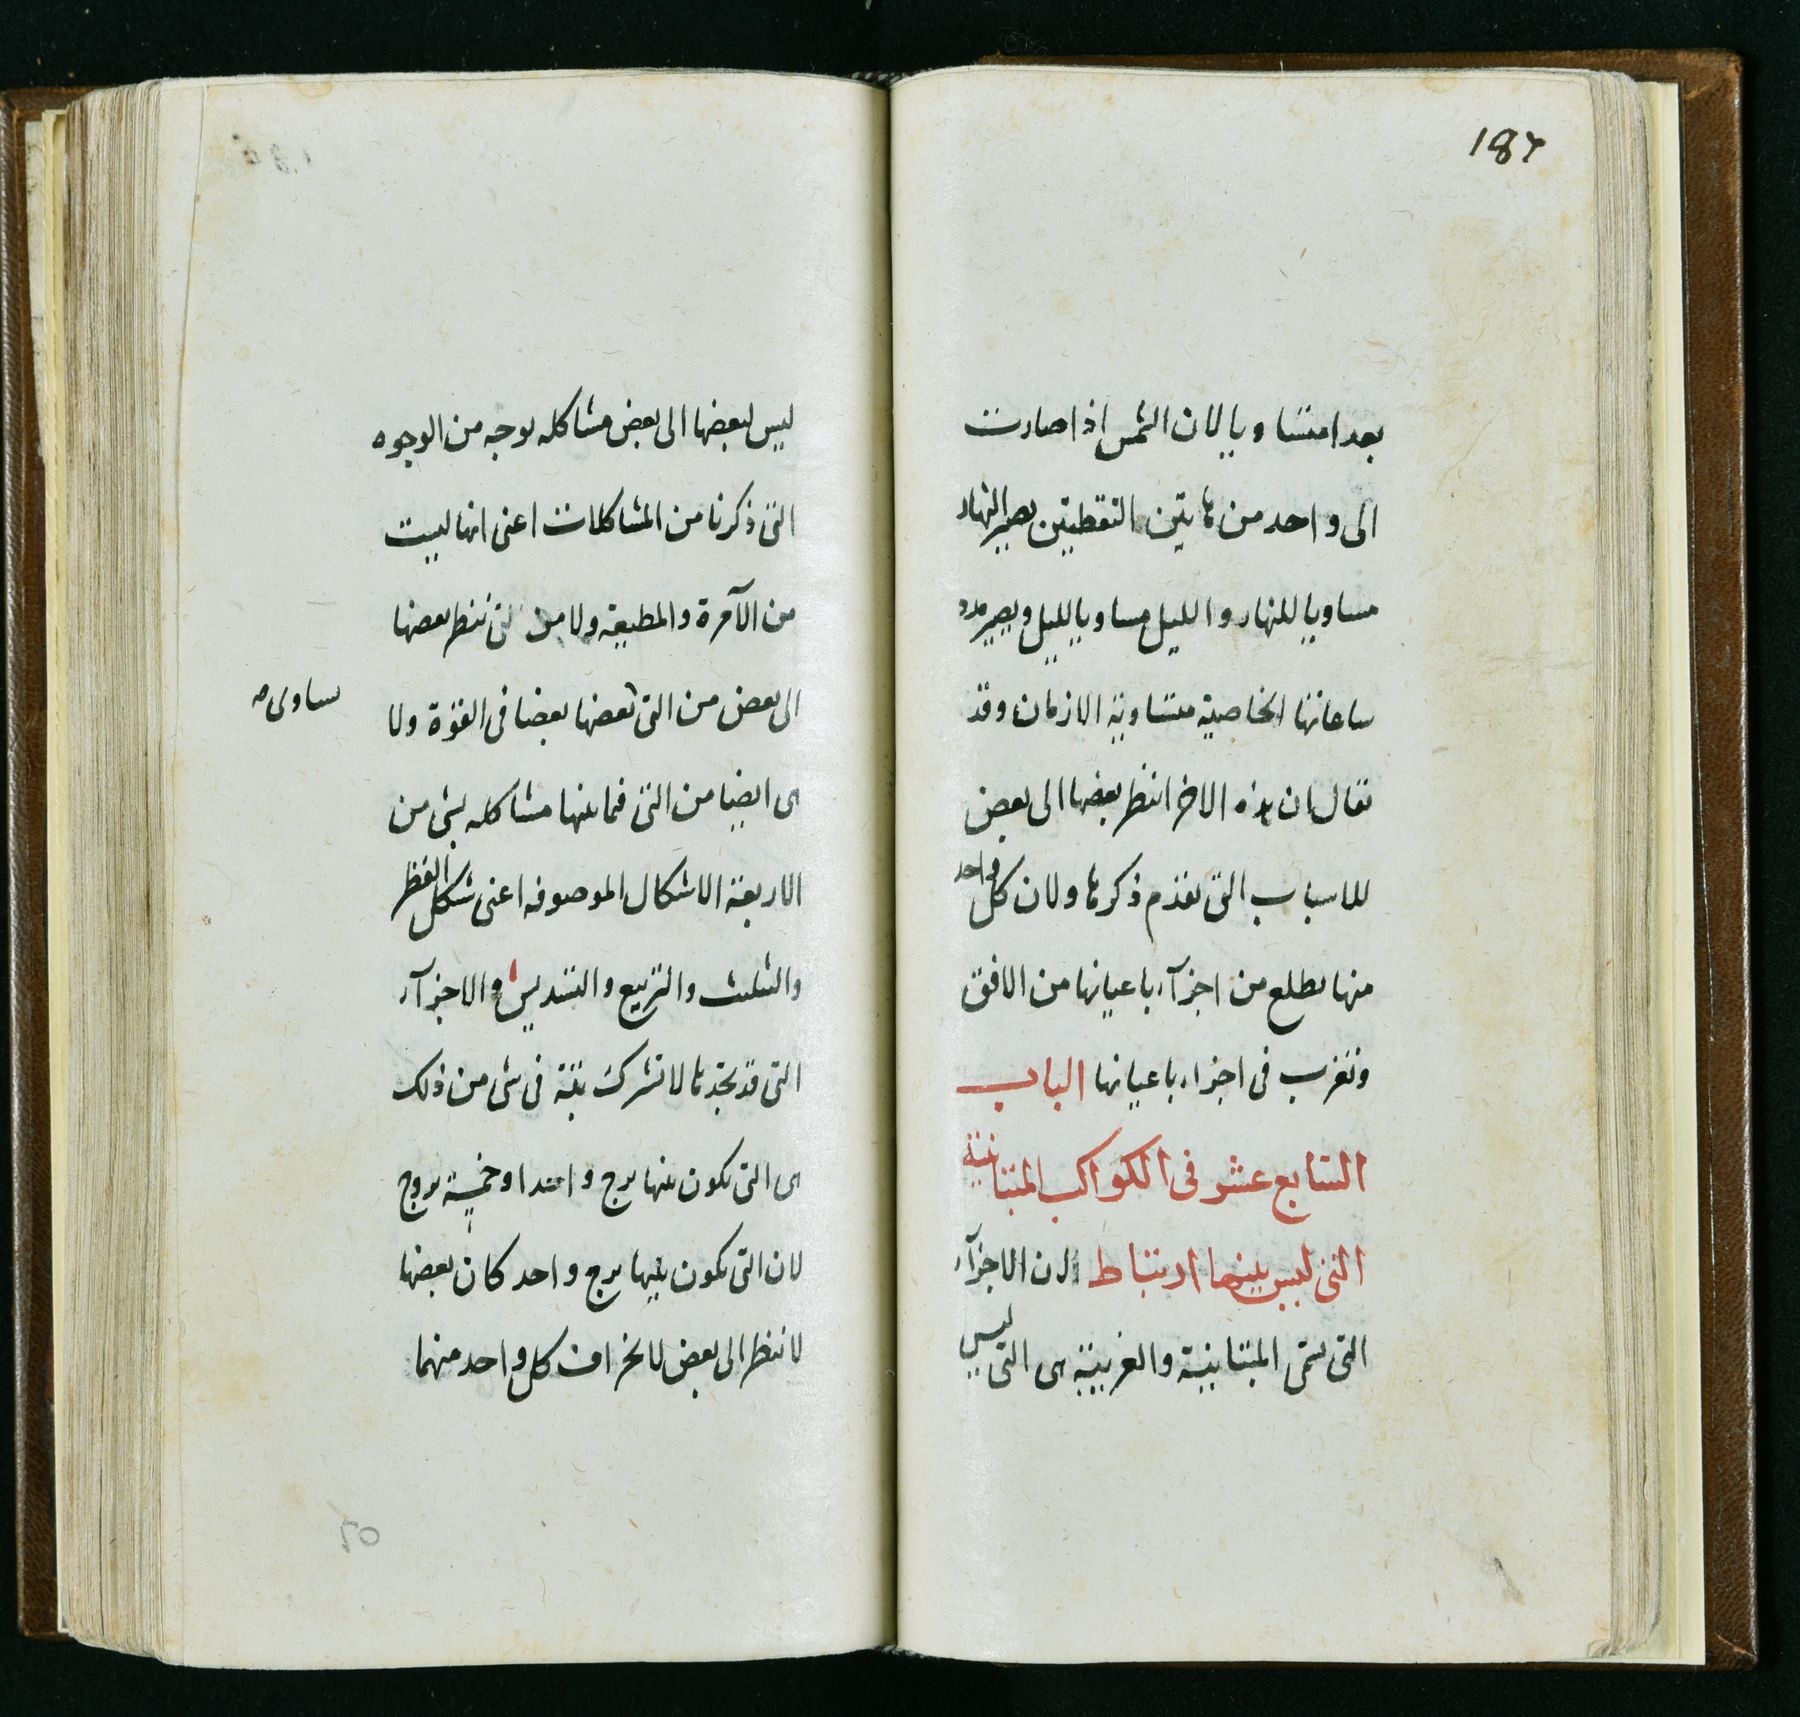 187
بعدا متساويا لان الشمس اذا صارت
الى واحد من هاتين النقطتين يصير النهار
مساويا للنهار والليل مساويا لليل ويصير مدد
ساعاتها الخاصية متساوية الازمان وقد
تقال ان هذه الاخر انتظر بعضها الى بعض
للاسباب التى تقدم ذكرها ولان كل واحد
منها تطلع من اجزآء باعيانها من الافق
وتغرب فى اجزاء باعيانها الباب
السابع عشر فى الكواكب المتباينة
التى ليس بينها ارتباط ان الاجزآء
التى تسمى المتباينة والغريبة هى التى ليس
ليس لبعضها الى بعض مشاكله بوجه من الوجوه
التى ذكرنا من المشاكلات اعنى انها ليست
من الآمرة والمطيعة ولا من التى تنظر بعضها
الى بعض من التى بعضها بعضا فى القوة ولا
ساوى
هى ايضا من التى فيما بينها مشاكله بشى من
الاربعة الاشكال الموصوفه اعنى شكل القطر
والتثليث والتربيع والتسديس والاجزآء
التى قد نجدها لا تشرك بتة فى شى من ذلك
هى التى تكون بينها برج واحد او خمسة بروج
لان التى تكون بينها برج واحد كان بعضها
لا تنظر الى بعض لانحراف كل واحد منهما